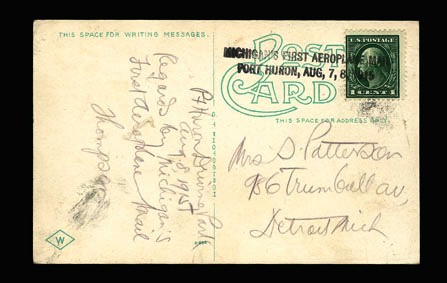 THIS SPACE FOR WRITING MESSAGES.
POST
CARD
MICHIGAN'S FIRST AEROPLANE MAIL
PORT HURON, AUG, 7, 8, 1915
U.S. POSTAGE
1 CENT 1
THIS SPACE FOR ADDRESS ONLY.
Pt Huron Driving Park
Aug 8, 1915
Regards by Michigan's
First Aeroplane Mail
Thompson
Mrs S. Patterson
986 Trumbull av,
Detroit Mich
W